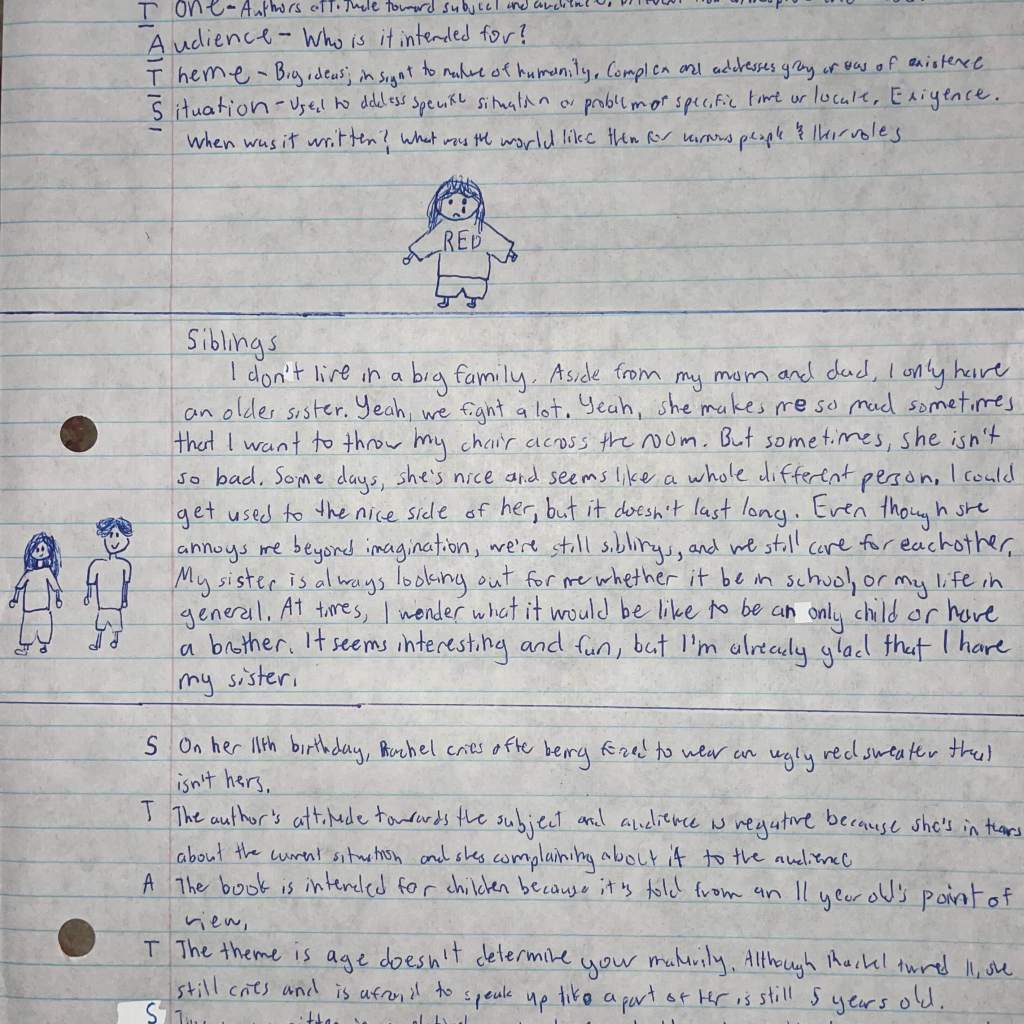 T one - Authors attitude toward subject and audience,
A udience - Who is it intended for?
T heme - Big ideas; insight to nature of humanity. Complex and addresses gray areas of existence
S ituation - Used to address specific situation or problem or specific time or locale. Exigence.
When was it written? What was the world like then for various people & their roles
RED
Siblings
I don't live in a big family. Aside from my mom and dad, I only have
an older sister. Yeah, we fight a lot. Yeah, she makes me so mad sometimes
that I want to throw my chair across the room. But sometimes, she isn't
so bad. Some days, she's nice and seems like a whole different person. I could
get used to the nice side of her, but it doesn't last long. Even though she
annoys me beyond imagination, we're still siblings, and we still care for eachother.
My sister is always looking out for me whether it be in school, or my life in
general. At times, I wonder what it would be like to be an only child or have
a brother. It seems interesting and fun, but I'm already glad that I have
my sister.
S On her 11th birthday, Rachel cries after being forced to wear an ugly red sweater that
isn't hers.
T The author's attitude towards the subject and audience is negative because she's in tears
about the current situation and shes complaining about it to the audience
A The book is intended for children because it's told from an 11 year old's point of
view.
T The theme is age doesn't determine your maturity. Although Rachel turned 11, she
still cries and is afraid to speak up like a part of her is still 5 years old.
S